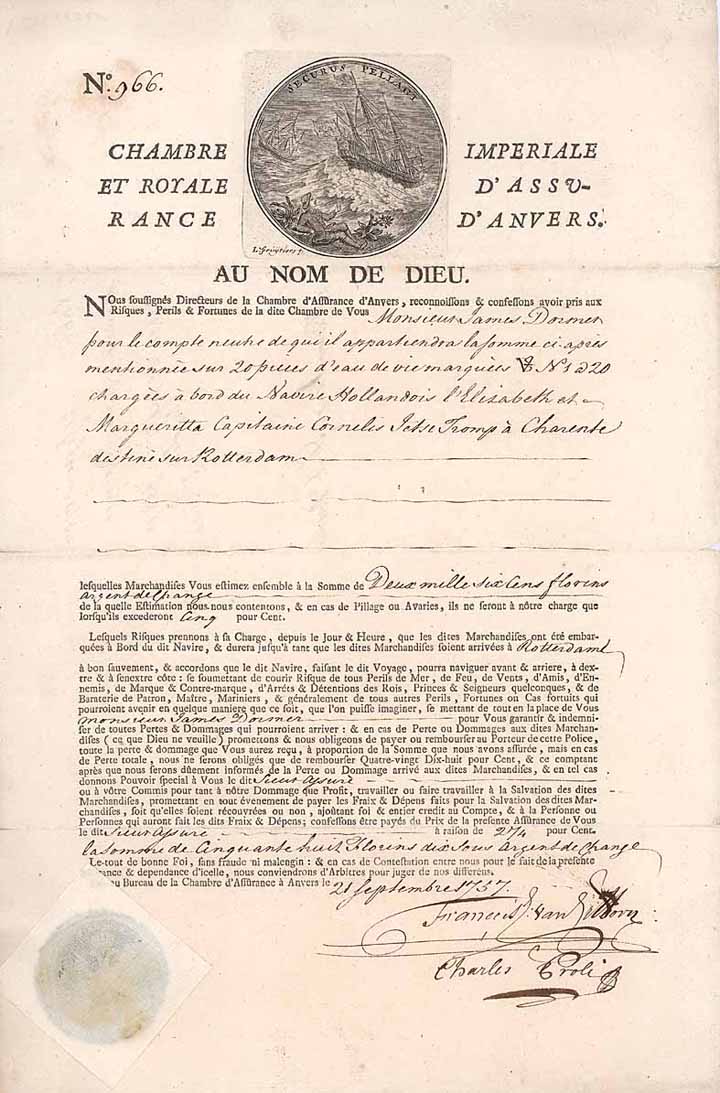 No. 966.
SECURUS PELLANT
CHAMBRE IMPERIALE
ET ROYALE D'ASSU-
RANCE D'ANVERS.
AU NOM DE DIEU.
NOus soussignés Directeurs de la Chambre d'Assurance d'Anvers, reconnoissons & confessons avoir pris aux
Risques, Perils & Fortunes de la dite Chambre de Vous Monsieur James Dormer
pour le compte neutre de qui il appartiendra la somme ci après
mentionnée sur 20 pieces d'eau de vie marquées N 1 a 20
chargées à bord du Navire Hollandois l'Elizabeth et
Margueritta Capitaine Cornelis Jetse Tromp à Charente
destiné sur Rotterdam
lesquelles Marchandises Vous estimez ensemble à la Somme de Deux mille six Cens florins
argent de Change
de la quelle Estimation nous nous contentons, & en cas de Pillage ou Avaries, ils ne seront à nôtre charge que
lorsqu'ils excederont Cinq pour Cent.
Lesquels Risques prennons à sa Charge, depuis le Jour & Heure, que les dites Marchandises ont été embar-
quées à Bord du dit Navire, & durera jusqu'à tant que les dites Marchandises soient arrivées à Rotterdam
à bon sauvement, & accordons que le dit Navire, faisant le dit Voyage, pourra naviguer avant & arriere, à dex-
tre & à senextre côte: se soumettant de courir Risque de tous Perils de Mer, de Feu, de Vents, d'Amis, d'En-
nemis, de Marque & Contre-marque, d'Arrêts & Détentions des Rois, Princes & Seigneurs quelconques, & de
Baraterie de Patron, Maître, Mariniers, & généralement de tous autres Perils, Fortunes ou Cas fortuits qui
pourroient avenir en quelque maniere que ce soit, que l'on puisse imaginer, se mettant de tout en la place de Vous
monsieur James Dormer pour Vous garantir & indemni-
ser de toutes Pertes & Dommages qui pourroient arriver: & en cas de Perte ou Dommages aux dites Marchan-
dises (ce que Dieu ne veuille) promettons & nous obligeons de payer ou rembourser au Porteur de cette Police,
toute la perte & dommage que Vous aurez reçu, à proportion de la Somme que nous avons assurée, mais en cas
de Perte totale, nous ne serons obligés que de rembourser Quatre-vingt Dix-huit pour Cent, & ce comptant
après que nous serons dûement informés de la Perte ou Dommage arrivé aux dites Marchandises, & en tel cas
donnons Pouvoir special à Vous le dit Sieur Assuré
ou à vôtre Commis pour tant à nôtre Dommage que Profit, travailler ou faire travailler à la Salvation des dites
Marchandises, promettant en tout évenement de payer les Fraix & Dépens faits pour la Salvation des dites Mar-
chandises, soit qu'elles soient récouvrées ou non, ajoûtant foi & entier credit au Compte, & à la Personne ou
Personnes qui auront fait les dits Fraix & Dépens; confessons être payés du Prix de la presente Assurance de Vous
le dit Sieur Assuré à raison de 2 1/4 pour Cent.
la Somme de Cinquante huit Florins dix Sous Argent de Change
Le tout de bonne Foi, sans fraude ni malengin: & en cas de Contestation entre nous pour le fait de la presente
& dependance d'icelle, nous conviendrons d'Arbitres pour juger de nos différens.
au Bureau de la Chambre d'Assurance à Anvers le 21 Septembre 1757.
François van
Charles Proli